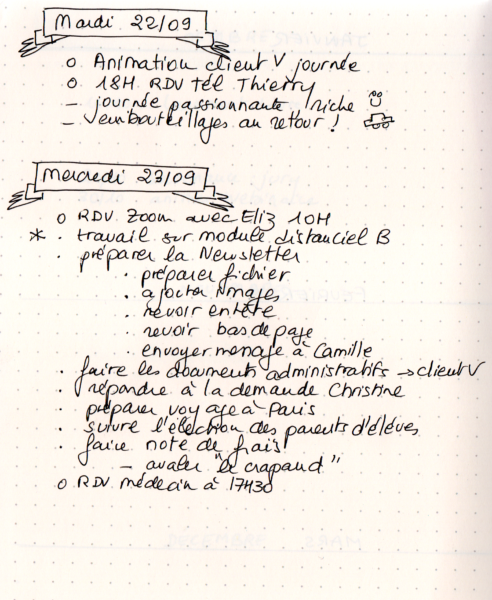 Mardi 22/09
o Animation client V journée
o 18H RDV tél Thierry
– journée passionnante, riche
– embouteillages au retour !
Mercredi 23/09
o RDV Zoom avec Eliz 10H
* . travail sur module distanciel B
. préparer la Newsletter
. préparer fichier
. ajouter images
. revoir entête
. revoir bas de page
. envoyer message à Camille
. faire les documents administratifs → client V
. répondre à la demande Christine
. préparer voyage à Paris
. suivre l'élection des parents d'élèves
. faire note de frais
– avaler "le crapaud"
o RDV médecin à 17H30